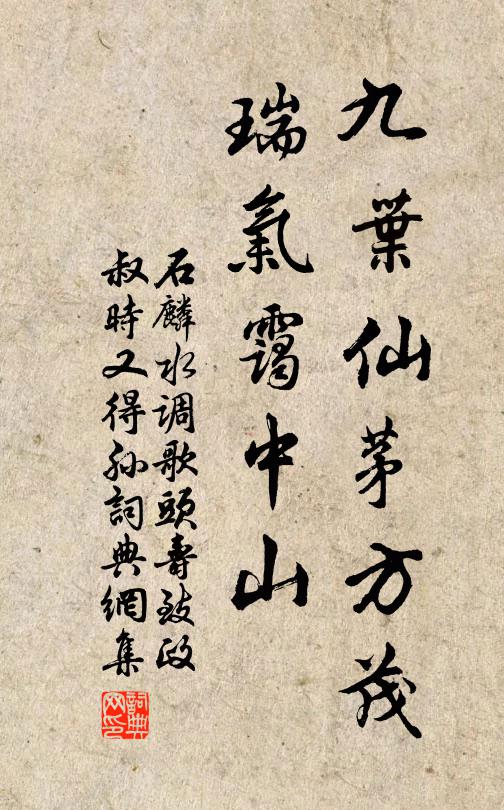 九葉仙茅方茂
瑞氣靄中山
石麟水调歌頭壽致政
叔時又得孫詞典網集
詞典
网印